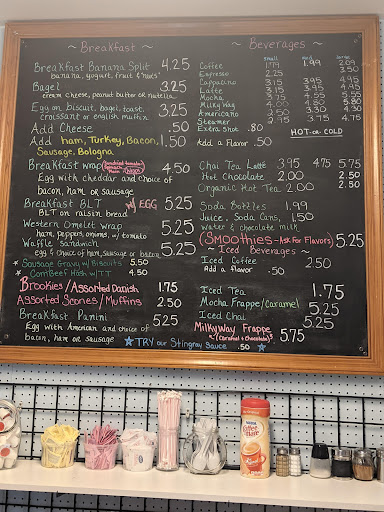 ~ Breakfast ~
Breakfast Banana Split 4.25
banana, yogurt, fruit & nuts
Bagel 3.25
cream cheese, peanut butter or nutella
Egg on biscuit, bagel, toast, 3.25
croissant or english muffin
Add Cheese .50
Add ham, Turkey, Bacon, 1.50
Sausage, Bologna
Breakfast wrap 4.50
Egg with cheddar and choice of
bacon, ham or sausage
Breakfast BLT w/ EGG 5.25
BLT on raisin bread
Western Omelet wrap 5.25
ham, peppers, onions, w/ tomato
Waffle Sandwich 5.25
egg & choice of ham, sausage or bacon
* Sausage Gravy w/ Biscuits 5.50
* Corn Beef Hash w/ TT 4.50
Brookies / Assorted Danish 1.75
Assorted Scones / Muffins 2.50
Breakfast Panini 5.25
Egg with American and choice of
bacon, ham or sausage
~ Beverages ~
Small Large
Coffee 1.79 1.99 2.09
Espresso 2.25 3.50
Cappuccino 3.15 3.95 4.95
Latte 3.15 3.95 4.95
Mocha 3.75
Milky Way 4.00 5.80
Americano 3.50 4.30
Steamer 2.95 3.75 4.75
Extra shot .80
HOT or COLD
Add a Flavor .50
Chai Tea Latte 3.95 4.75 5.75
Hot Chocolate 2.00 2.50
Organic Hot Tea 2.00 2.50
Soda Bottles 1.99
Juice, Soda Cans, 1.50
Water & chocolate milk
(Smoothies - Ask For Flavors) 5.25
~ Iced Beverages ~
Iced Coffee 2.50
Add a flavor .50
Iced Tea 1.75
Mocha Frappe/Caramel 5.25
Iced Chai 5.25
Milky Way Frappe 5.75
(Caramel & Chocolate)
* TRY our Stingray Sauce .50 *
Coffee
mate